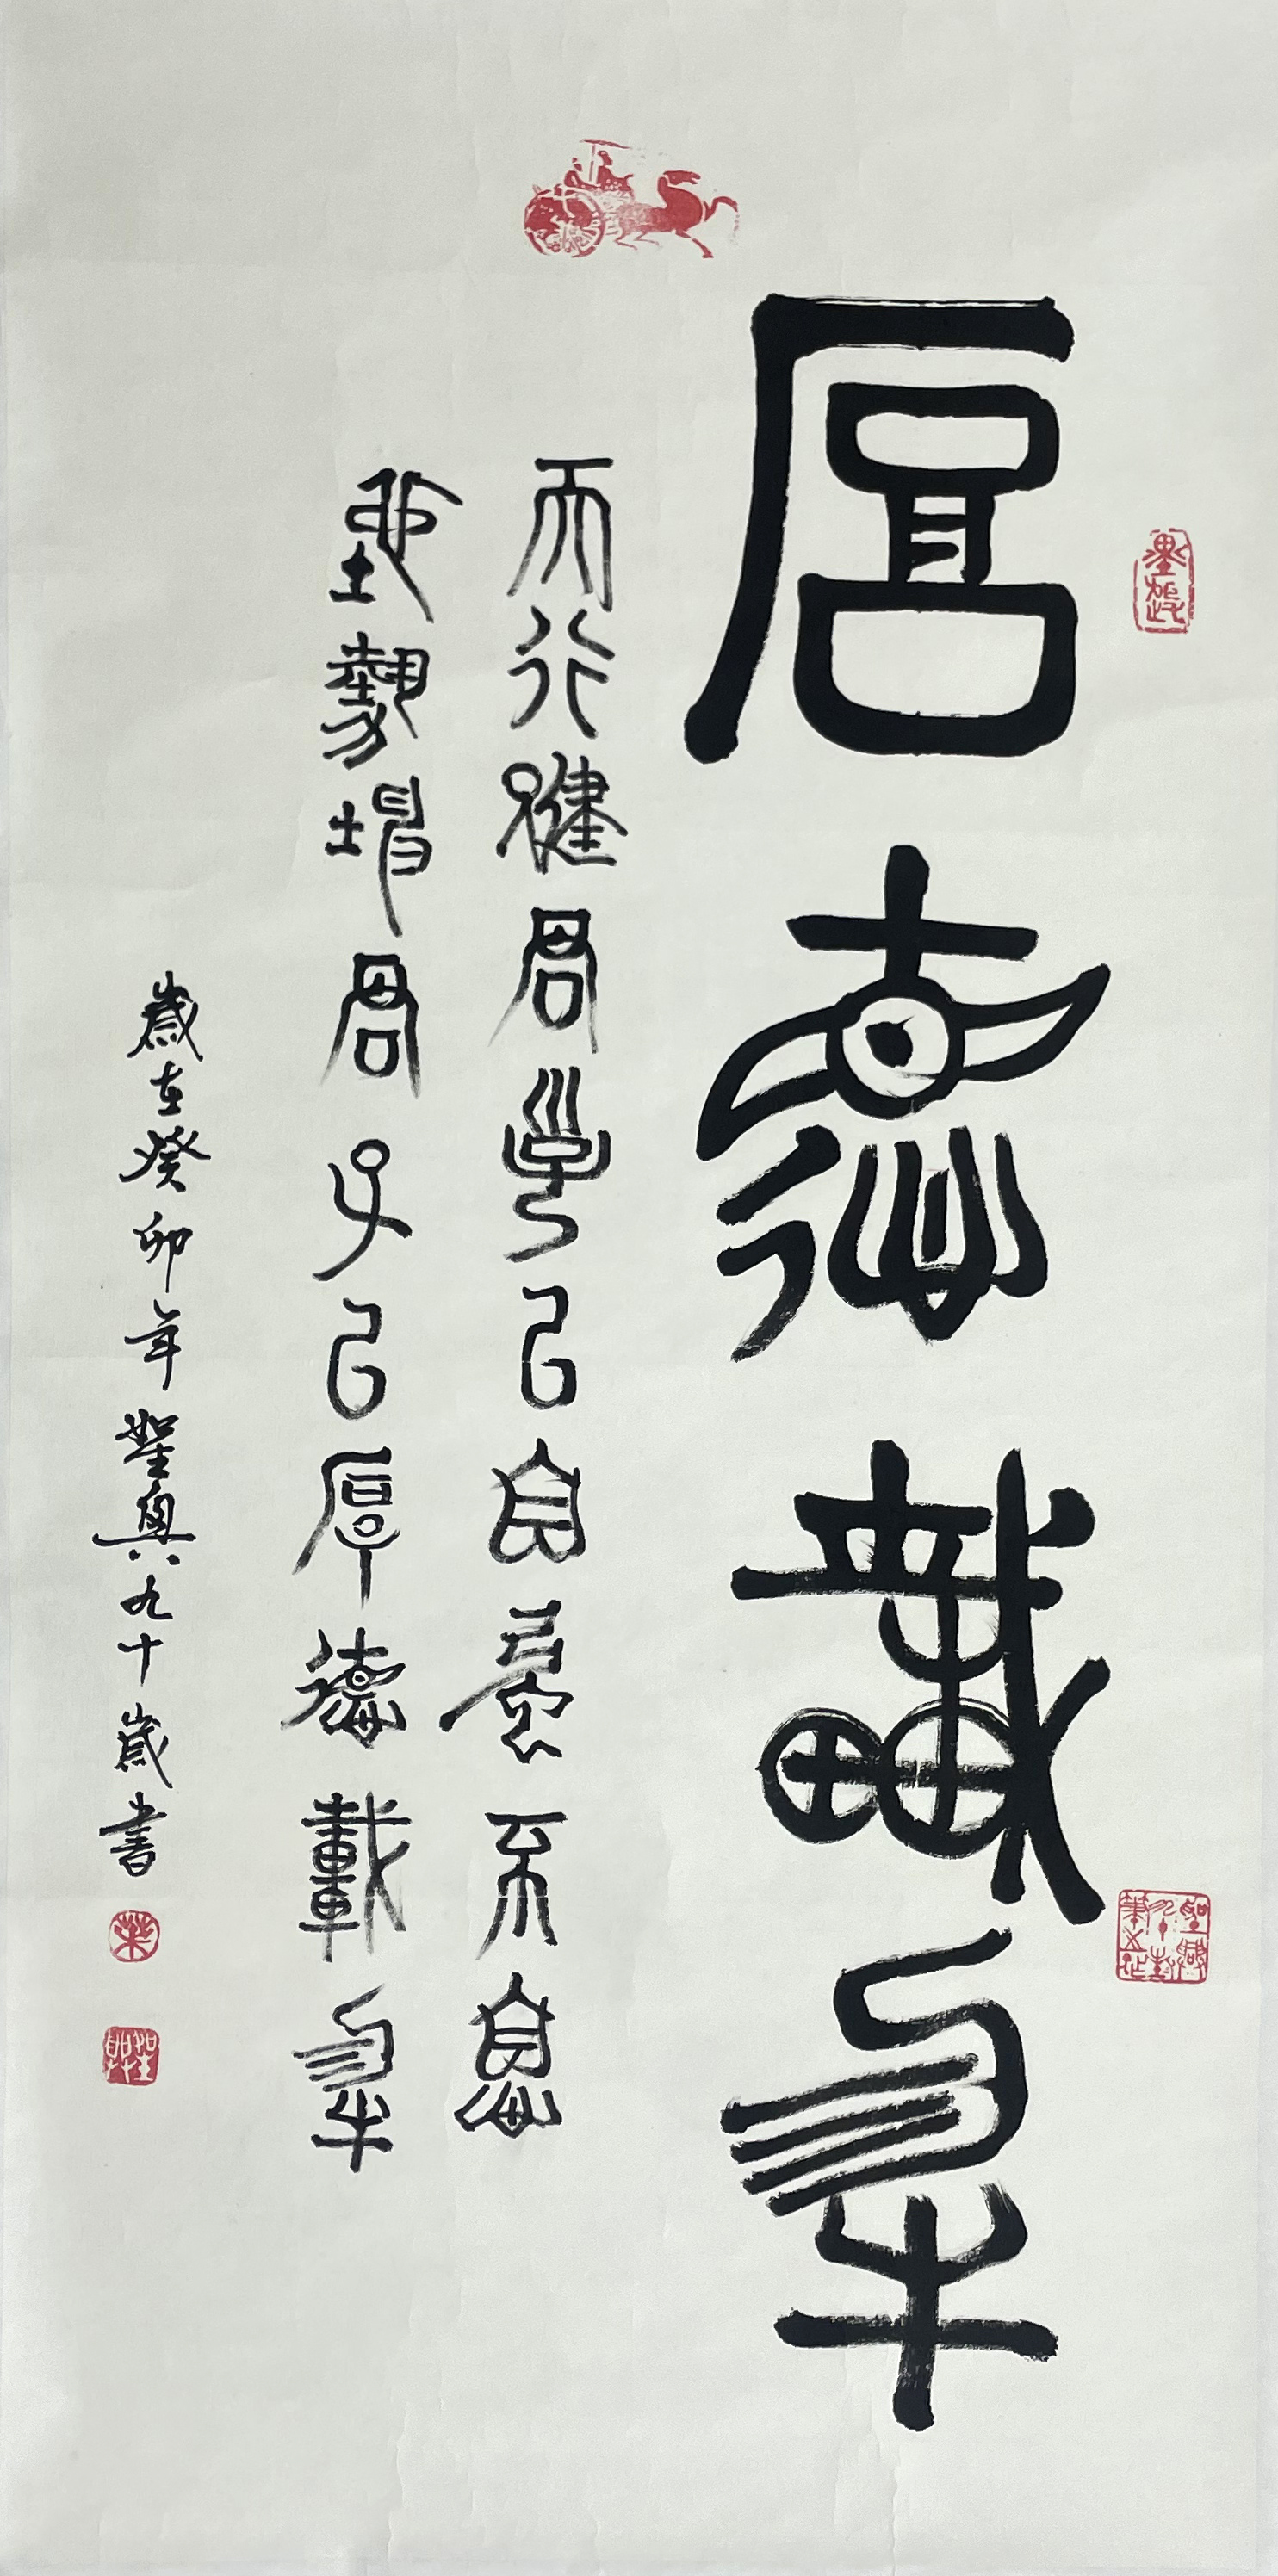 厚德載物
天行健君子以自强不息
地勢坤君子以厚德載物
歲在癸卯年聖與九十歲書